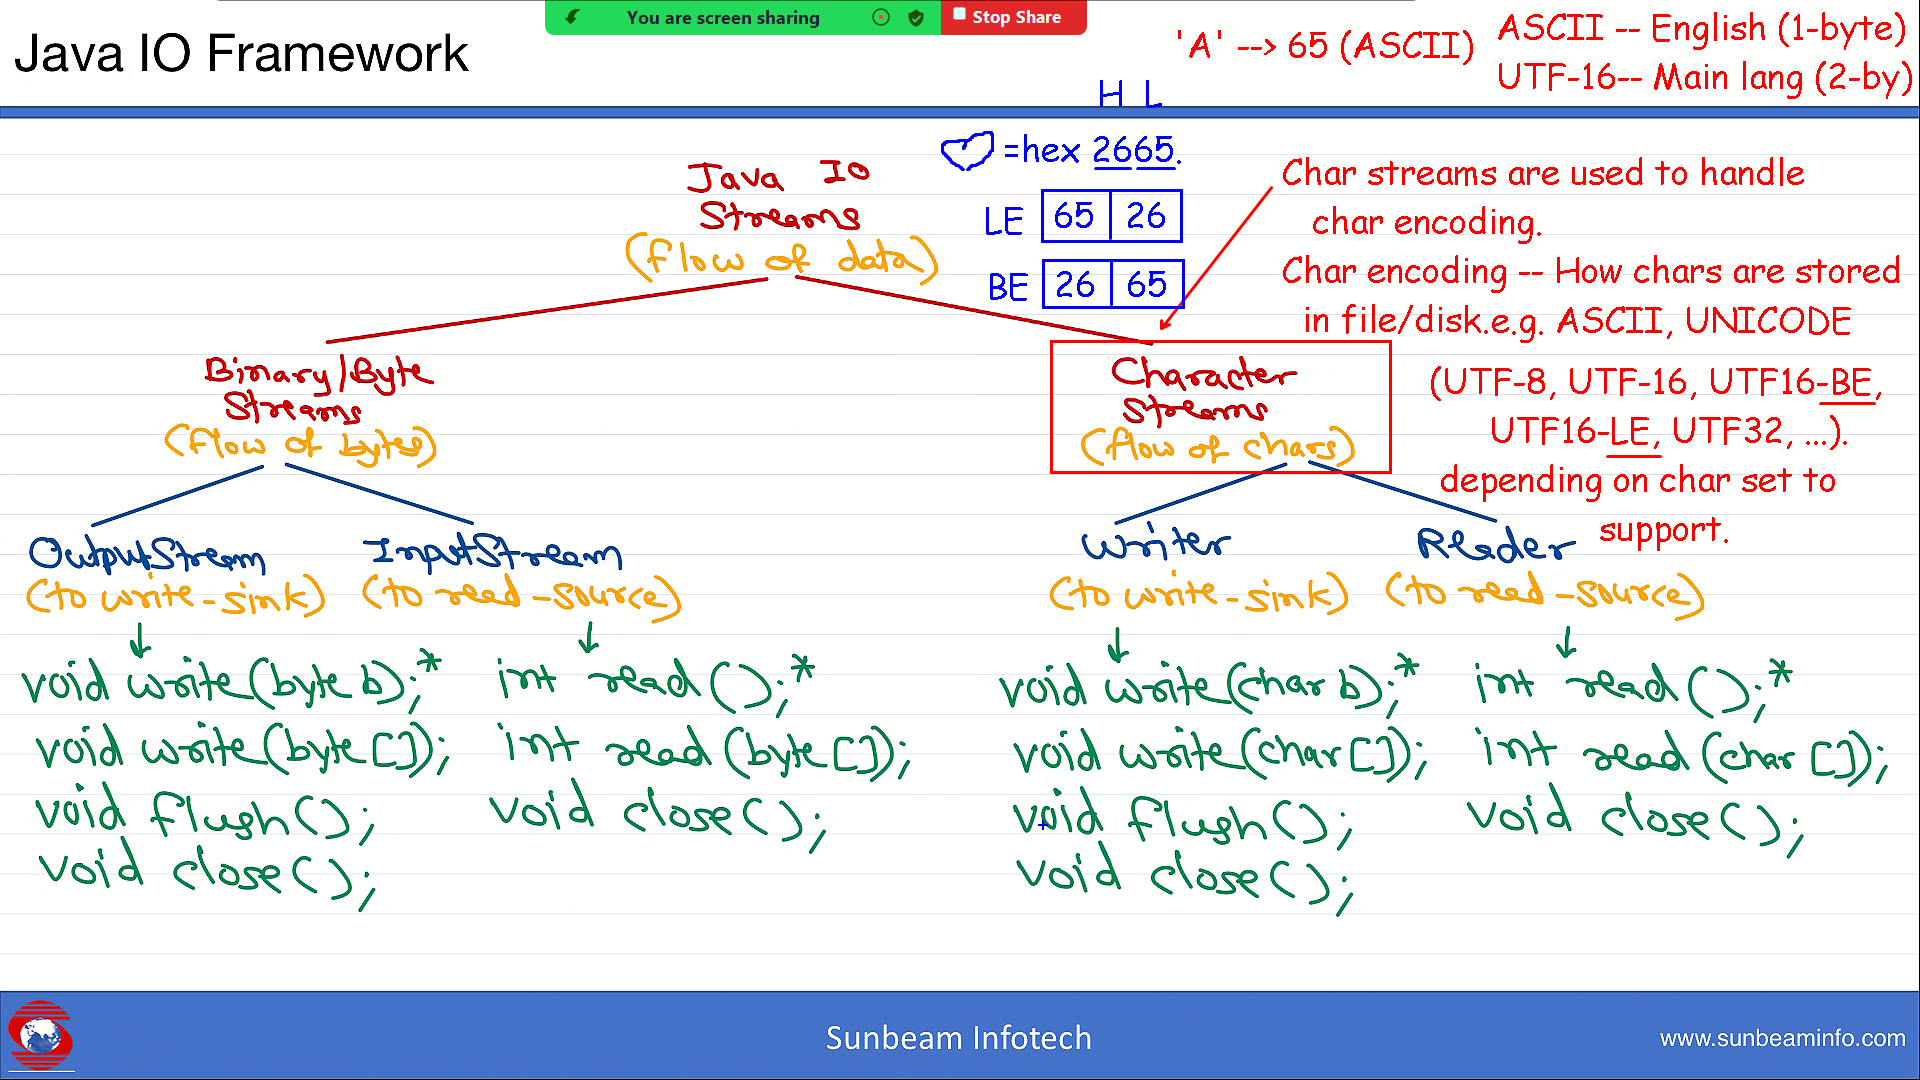 You are screen sharing
Stop Share
Java IO Framework
'A' --> 65 (ASCII)
ASCII -- English (1-byte)
UTF-16-- Main lang (2-by)
H L
=hex 2665.
LE 65 26
BE 26 65
Java IO
Streams
(flow of data)
Char streams are used to handle
char encoding.
Char encoding -- How chars are stored
in file/disk.e.g. ASCII, UNICODE
(UTF-8, UTF-16, UTF16-BE,
UTF16-LE, UTF32, ...).
depending on char set to
support.
Binary/Byte
Streams
(flow of bytes)
Character
Streams
(flow of chars)
OutputStream
(to write-sink)
void write(byte b);*
void write(byte[]);
void flush();
void close();
InputStream
(to read-source)
int read();*
int read(byte[]);
void close();
Writer
(to write-sink)
void write(char b);*
void write(char[]);
void flush();
void close();
Reader
(to read-source)
int read();*
int read(char[]);
void close();
Sunbeam Infotech
www.sunbeaminfo.com